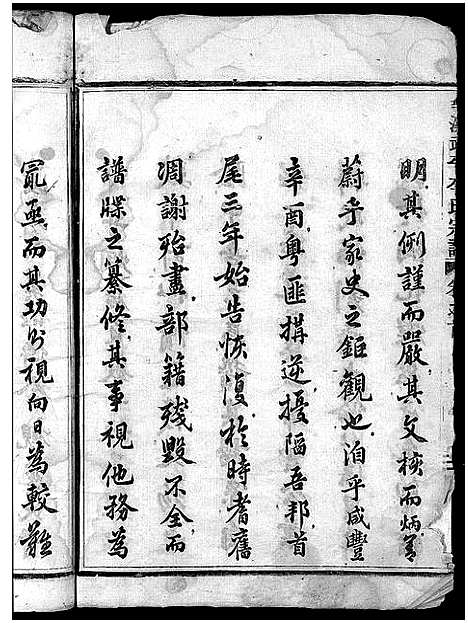 明其例謹而嚴其文核而炳蔚
蔚乎家史之鉅觀也洎乎咸豐
辛酉粵匪搆逆擾隔吾邦首
尾三年始告恢復於時耆舊
凋謝殆盡部籍殘毀不全而
譜牒之纂修其事視他務為
冣亟而其功則視向日為較難